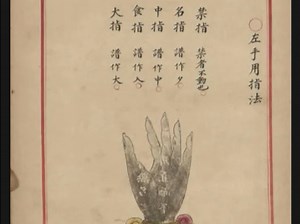 左手用指法
禁指 禁者不動也
名指 譜作夕
中指 譜作中
食指 譜作人
大指 譜作大